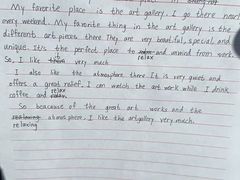 My favorite place is the art gallery. I go there nearly
every weekend. My favorite thing in the art gallery is the
different art pieces there. They are very beautiful, special, and
unique. It's the perfect place to relax and unwind from work.
So, I like very much
I also like the atmosphere there. It is very quiet and
offers a great relief. I can watch the art work while I drink
coffee and relax
So beacause of the great art works and the
relaxing atmosphere, I like the artgallery very much.